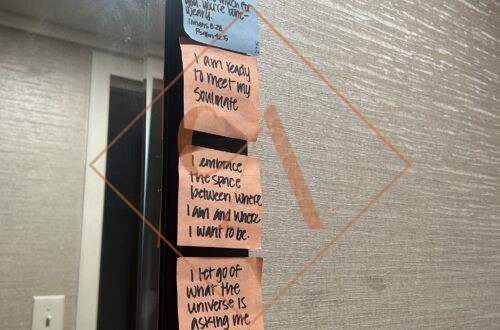 you. you're bone-
weary.
Psalm 42:5
I am ready
to meet my
soulmate
I embrace
the space
between where
I am and where
I want to be.
I let go of
what the
universe is
asking me